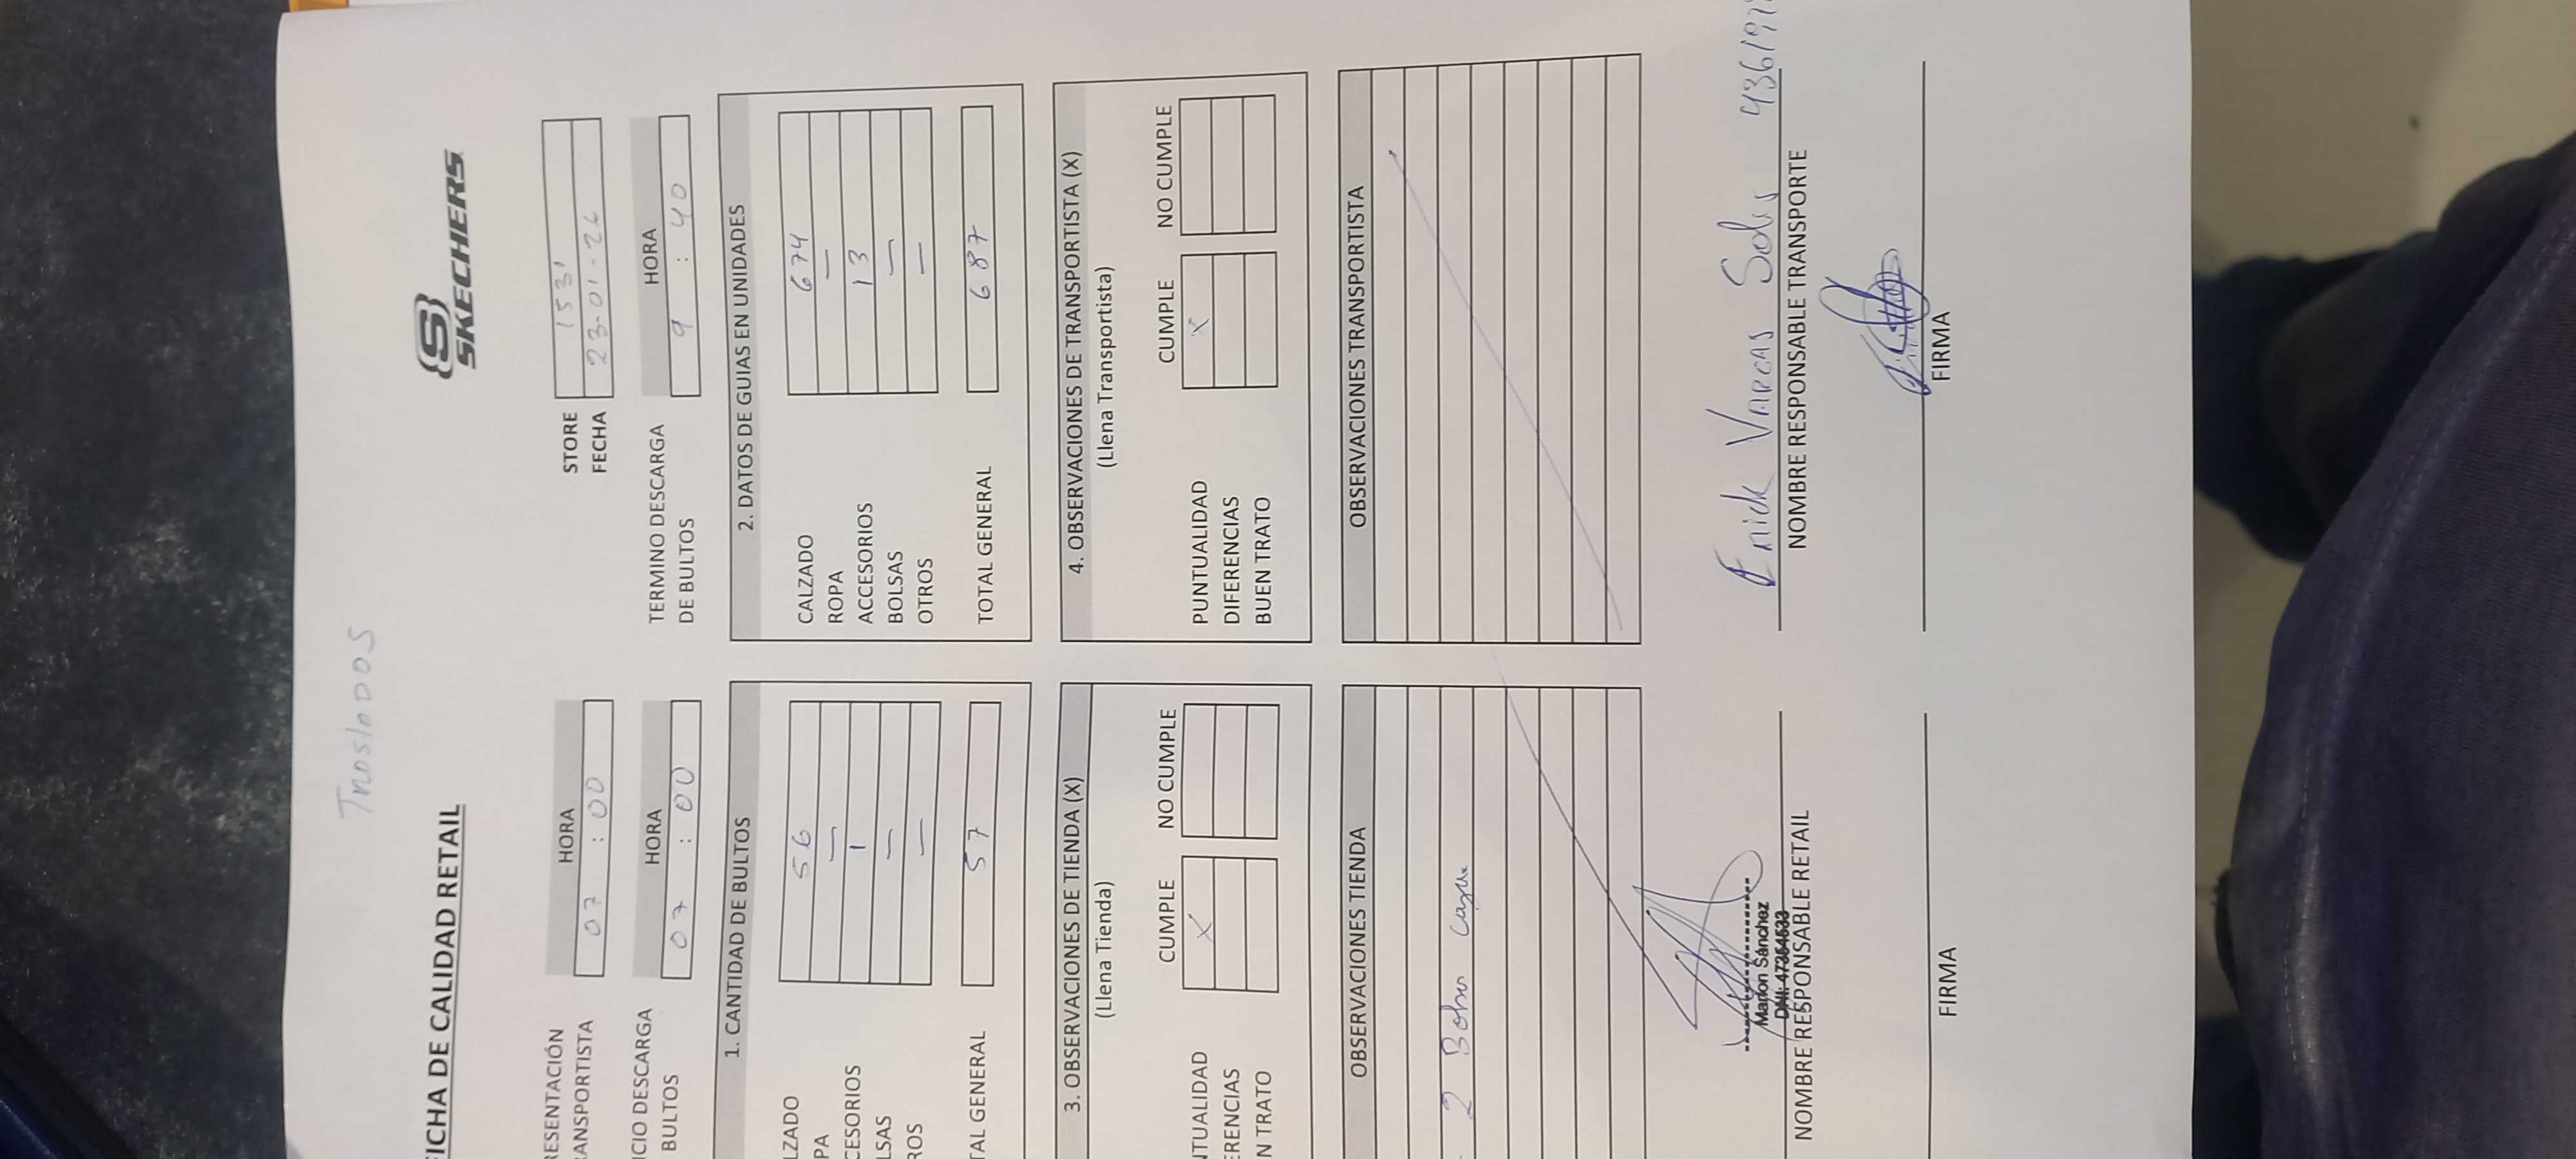 Traslados
FICHA DE CALIDAD RETAIL
SKECHERS
STORE 153
FECHA 23-01-26
RESENTACIÓN
RANSPORTISTA
HORA
07 : 00
ICIO DESCARGA
BULTOS
HORA
07 : 00
TERMINO DESCARGA
DE BULTOS
HORA
9 : 40
1. CANTIDAD DE BULTOS
LZADO 56
PA —
CESORIOS 1
LSAS —
ROS —
TAL GENERAL 57
2. DATOS DE GUIAS EN UNIDADES
CALZADO 674
ROPA —
ACCESORIOS 13
BOLSAS —
OTROS —
TOTAL GENERAL 687
3. OBSERVACIONES DE TIENDA (X)
(Llena Tienda)
CUMPLE NO CUMPLE
NTUALIDAD X
ERENCIAS
N TRATO
4. OBSERVACIONES DE TRANSPORTISTA (X)
(Llena Transportista)
CUMPLE NO CUMPLE
PUNTUALIDAD X
DIFERENCIAS
BUEN TRATO
OBSERVACIONES TIENDA
2
OBSERVACIONES TRANSPORTISTA
Marlon Sánchez
DNI:
NOMBRE RESPONSABLE RETAIL
FIRMA
Erick Vargas Solis
NOMBRE RESPONSABLE TRANSPORTE
FIRMA